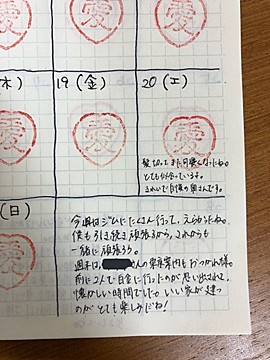 (木)
19(金)
20(土)
愛
愛
愛
愛
愛
髪切ってまた可愛くなったね。
とても似合っています。
きれいで自慢の奥さんです。
(日)
今週はジムにたくさん行って、えらかったね。
僕も引き続き頑張るから、これからも
一緒に頑張ろう。
週末は、さんの東京案内もおつかれ様。
前に2人で白金に行ったのが思い出されて、
懐かしい時間でした。いい家が建つ
のがとても楽しみだね!